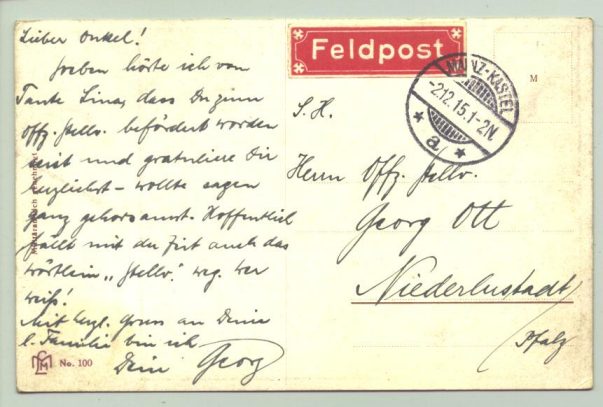 Lieber Onkel!
Soeben hörte ich von
Tante Lina, dass Du zum
Offz. Stellv. befördert worden
seist und gratuliere Dir
herzlichst - wollte sagen
ganz gehorsamst. Hoffentlich
fällt mit der Zeit auch das
Wörtlein „Stellv." weg. Wer
weiß!
Mit hzl. Gruss an Deine
l. Familie bin ich
Dein Georg
No. 100
Feldpost
MAINZ-KASTEL
-2.12.15.1-2N.
* a *
M
S. H.
Herrn Offz. Stellv.
Georg Ott
Niederlustadt
Pfalz